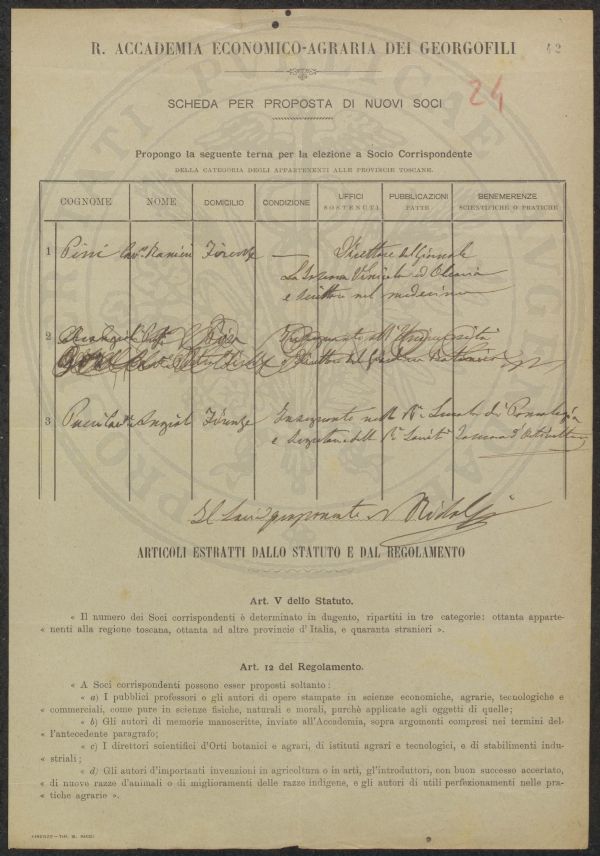 R. ACCADEMIA ECONOMICO-AGRARIA DEI GEORGOFILI
42
24
SCHEDA PER PROPOSTA DI NUOVI SOCI
Propongo la seguente terna per la elezione a Socio Corrispondente
DELLA CATEGORIA DEGLI APPARTENENTI ALLE PROVINCIE TOSCANE.
COGNOME NOME DOMICILIO CONDIZIONE UFFICI SOSTENUTI PUBBLICAZIONI FATTE BENEMERENZE SCIENTIFICHE O PRATICHE
1 Pini Cav. Ranieri Firenze — Direttore del Giornale
La Toscana Vinicola ed Olearia
e scrittore nel medesimo
2 Pisa Insegnante all' Università
e Direttore del Giardino Botanico
3 Pucci Cav. Angiolo Firenze Insegnante nella R. Scuola di Pomologia
e Segretario della R. Società Toscana d'Orticultura
Il Socio proponente Ridolfi
ARTICOLI ESTRATTI DALLO STATUTO E DAL REGOLAMENTO
Art. V dello Statuto.
« Il numero dei Soci corrispondenti è determinato in dugento, ripartiti in tre categorie: ottanta apparte-
« nenti alla regione toscana, ottanta ad altre provincie d' Italia, e quaranta stranieri ».
Art. 12 del Regolamento.
« A Soci corrispondenti possono esser proposti soltanto:
« a) I pubblici professori e gli autori di opere stampate in scienze economiche, agrarie, tecnologiche e
« commerciali, come pure in scienze fisiche, naturali e morali, purchè applicate agli oggetti di quelle;
« b) Gli autori di memorie manoscritte, inviate all'Accademia, sopra argomenti compresi nei termini del-
« l'antecedente paragrafo;
« c) I direttori scientifici d'Orti botanici e agrari, di istituti agrari e tecnologici, e di stabilimenti indu-
« striali;
« d) Gli autori d'importanti invenzioni in agricoltura o in arti, gl'introduttori, con buon successo accertato,
« di nuove razze d'animali o di miglioramenti delle razze indigene, e gli autori di utili perfezionamenti nelle pra-
« tiche agrarie ».
FIRENZE — TIP. M. RICCI